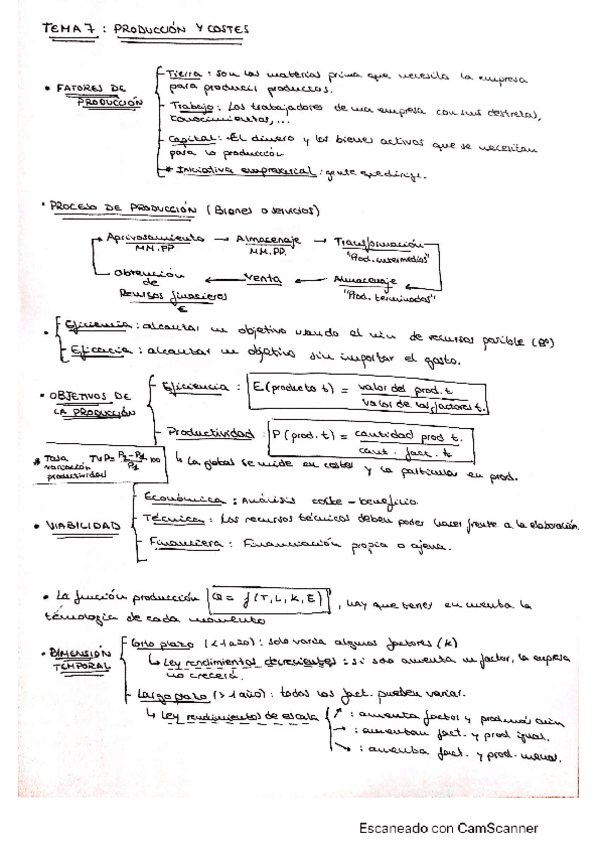 TEMA 7 : PRODUCCIÓN Y COSTES
• FATORES DE PRODUCCIÓN
- Tierra : son las materias prima que necesita la empresa
para producir productos.
- Trabajo : Los trabajadores de una empresa con sus destrezas,
conocimientos, ...
- Capital : El dinero y los bienes activos que se necesitan
para la producción
* Iniciativa empresarial : gente que dirige.
• PROCESO DE PRODUCCIÓN (Bienes o servicios)
Aprivosamiento MM.PP → Almacenaje MM.PP. → Transformación "Prod. intermedios"
Obtención de Recursos financieros € ← Venta ← Almacenaje "Prod. terminados"
• - Eficiencia : alcanzar un objetivo usando el min de recursos posible (Bº)
- Eficacia : alcanzar un objetivo sin importar el gasto.
• OBJETIVOS DE LA PRODUCCIÓN
- Eficiencia : E (producto t) = valor del prod. t / valor de los factores t.
- Productividad : P (prod. t) = cantidad prod t. / cant. fact. t
↳ La global se mide en costes y la particular en prod.
* Tasa variación productividad TVP = P2 - P1 / P1 · 100
• VIABILIDAD
- Económica : Análisis coste - beneficio.
- Técnica : Los recursos técnicos deben poder hacer frente a la elaboración.
- Financiera : Financiación propia o ajena.
• La función producción Q = f (T, L, K, E) , hay que tener en cuenta la
tecnología de cada momento
• DIMENSIÓN TEMPORAL
- Corto plazo (< 1 año) : solo varia algunos factores (K)
↳ Ley rendimientos decrecientes : si solo aumenta un factor, la empresa
no crecerá.
- Largo plazo (> 1 año) : todos los fact. pueden variar.
↳ Ley rendimientos de escala
↗ : aumenta factor y prod. más aún
→ : aumentan fact. y prod igual.
↘ : aumenta fact. y prod. menos.
Escaneado con CamScanner